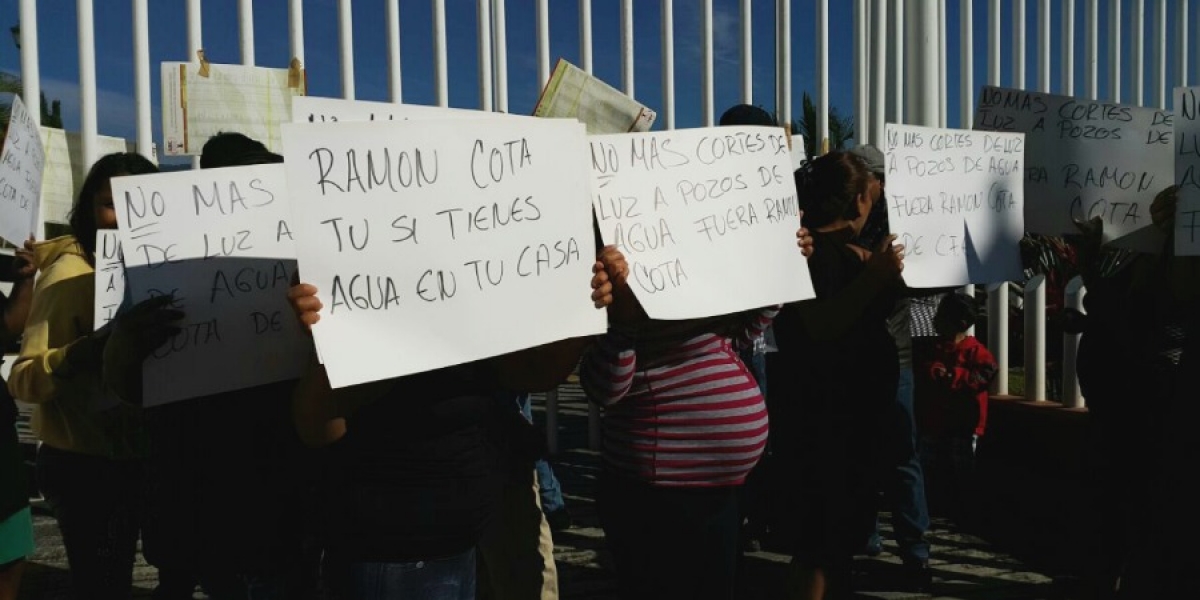 NO MAS
DE LUZ A
DE AGUA
COTA DE
RAMON COTA
TU SI TIENES
AGUA EN TU CASA
NO MAS CORTES DE
LUZ A POZOS DE
AGUA FUERA RAMON
COTA
NO MAS CORTES DE LUZ
A POZOS DE AGUA
FUERA RAMON COTA
DE CFE
NO MAS CORTES DE
LUZ A POZOS DE
RAMON
COTA